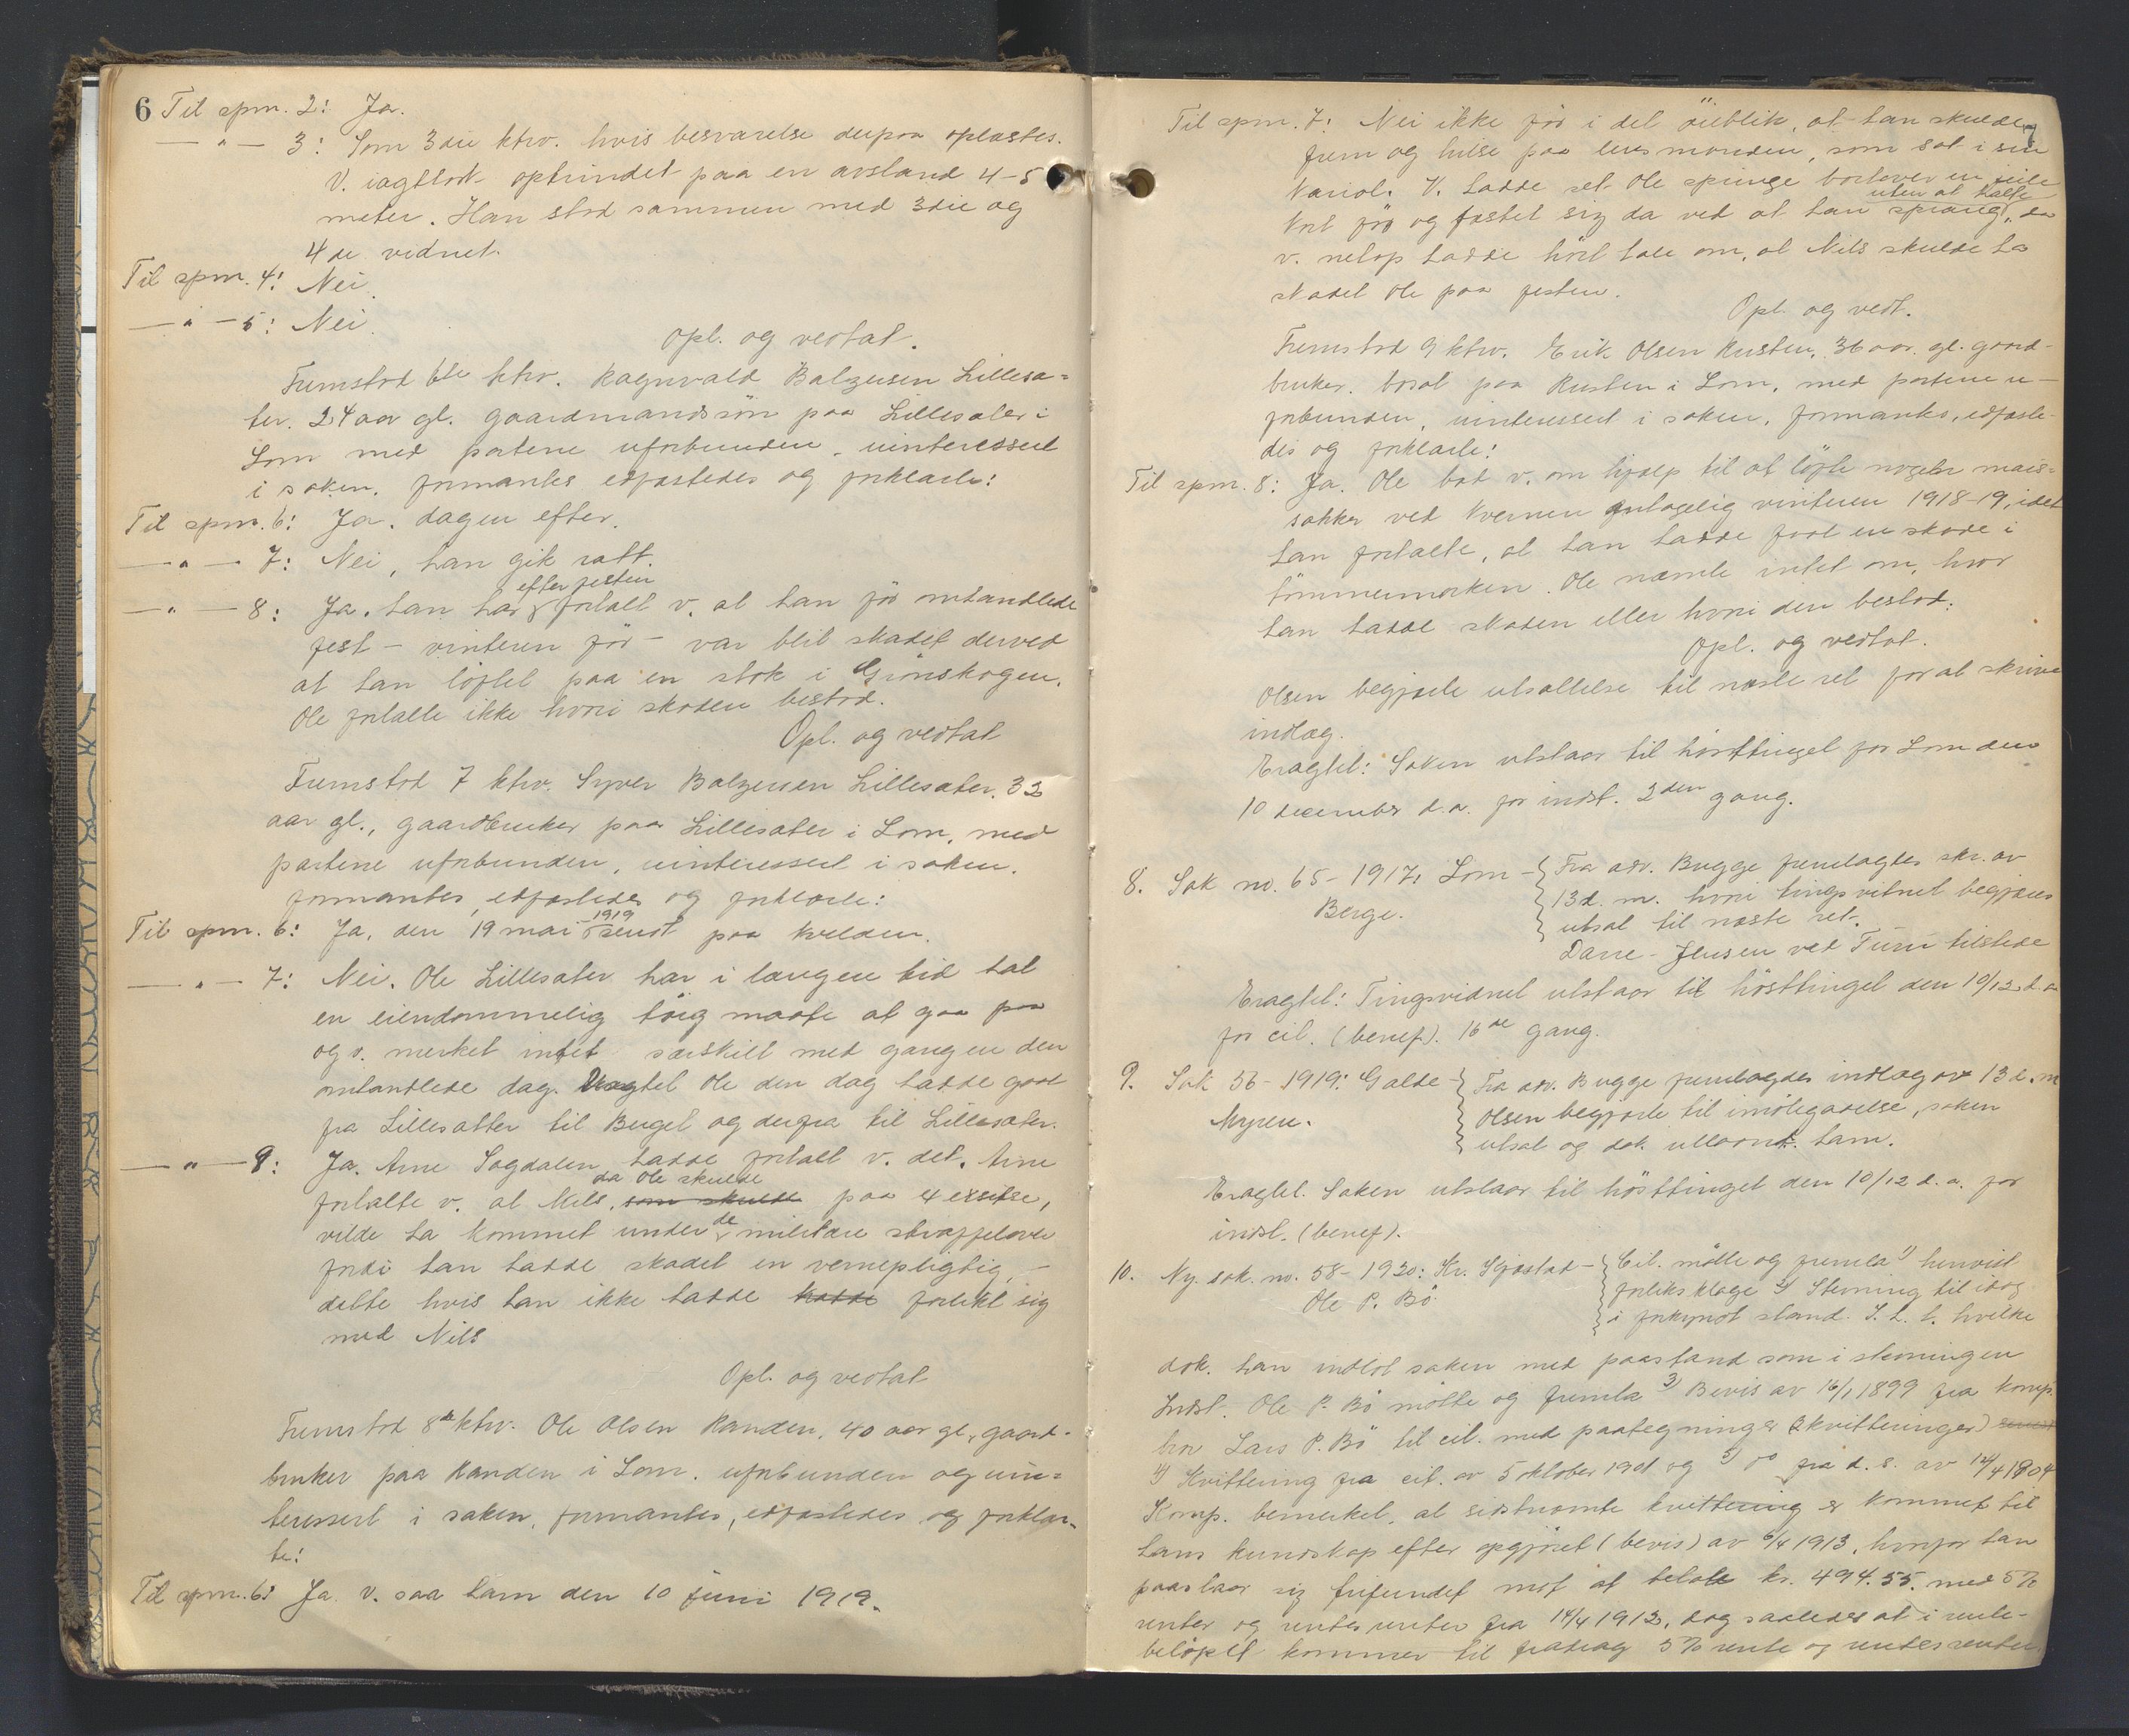 6 Til spm. 2: Ja.
— " — 3: Som 3die ktrv. hvis besvarelse derpaa oplæstes.
V. iagttok optrindet paa en avstand 4-5
meter. Han stod sammen med 3die og
4de vidnet.
Til spm. 4: Nei.
— " — 5: Nei.
Opl. og vedtat.
Fremstod 6te ktrv. Ragnvald Balzersen Lillesæ=
ter. 24 aar gl. gaardmandssøn paa Lillesæter i
Lom med partene uforbunden, uinteressert
i saken, formantes edfæstedes og forklarte:
Til spm. 6: Ja. dagen efter.
— " — 7: Nei, han gik ratt.
efter festen
— " — 8: Ja. han har fortalt v. at han før omhandlede
fest – vinteren før – var blit skadet derved
at han løftet paa en stok i Grønskogen.
Ole fortalte ikke hvori skaden bestod.
Opl. og vedtat
Fremstod 7 ktrv. Syver Balzersen Lillesæter. 32
aar gl., gaardbruker paa Lillesæter i Lom, med
partene uforbunden, uinteressert i saken.
formantes, edfæstedes og forklarte:
1919
Til spm. 6: Ja, den 19 mai senst paa kvelden.
— " — 7: Nei. Ole Lillesæter har i langen tid hat
en eiendommelig tøig maate at gaa paa
og v. merket intet særskilt med gangen den
omhandlede dag. Uagtet Ole den dag hadde gaat
fra Lillesætter til Berget og derfra til Lillesæter.
— " — 9: Ja. Arne Sogdalen hadde fortalt v. det. Arne
da Ole skulde
fortalte v. at Nils, som skulde paa exsitse,
de
vilde ha kommet under militære straffelove
fordi han hadde skadet en vernepligtig, –
dette hvis han ikke hadde hadde forlikt sig
med Nils
Opl. og vedtat
Fremstod 8de ktrv. Ole Olsen Randen, 40 aar gl., gaard-
bruker paa Randen i Lom. uforbunden og uin=
teressert i saken, formantes, edfæstedes og forklar-
te:
Til spm. 6: Ja. v. saa ham den 10 juni 1919.
7
Til spm. 7: Nei ikke før i det øieblik, at han skulde
frem og hilse paa lensmanden, som sat i sin
kariol. V. hadde set Ole springe bortover en jeile
uten at halte
kort før og fæstet sig da ved at han sprang, da
v. netop hadde hørt tale om, at Nils skulde ha
skadet Ole paa festen.
Opl. og vedt.
Fremstod 9 ktrv. Erik Olsen Rusten, 36 aar. gl. gaard-
bruker. bosat paa Rusten i Lom, med partene u-
forbunden, uinteressert i saken, formantes, edfæste-
des og forklarte:
Til spm. 8: Ja. Ole bad v. om hjælp til at løfte nogetr mais-
sækker ved kvernen antagelig vinteren 1918-19, idet
han fortalte, at han hadde faat en skade i
tømmermarken. Ole nævnte intet om, hvor
han hadde skaden eller hvori den bestod.
Opl. og vedtat.
Olsen begjærte utsættelse til næste ret for at skrive
indlæg.
Eragtet: Saken utstaar til høsttinget for Lom den
10 december d.a. for indst. 2den gang.
8. Sak no. 65-1917: Lom – Berge.
Fra adv. Bugge fremlagdes skr. av
13 d. m. hvori tingsvidnet begjæres
utsat til næste ret.
Dare-Jensen ved Turi tilstede
Eragtet: Tingsvidnet utstaar til høsttinget den 10/12 d.a
for cit. (benef). 16de gang.
9. Sak 56-1919: Galde – Myren.
Fra adv. Bugge fremlagdes indlæg av 13 d. m
Olsen begjærte til imøtegaaelse, saken
utsat og dok. utlaant ham.
Eragtet. Saken utstaar til høsttinget den 10/12 d.a. for
indst. (benef).
10. Ny. sak. no. 58-1920: Kr. Sjøstad – Ole P. Bø.
Cit. møtte og fremla 1) henvist
forliksklage 2) Stevning til idag
i forkyndt stand. I. h. t. hvilke
dok. han indlot saken med paastand som i stevningen
Indst. Ole P. Bø møtte og fremla 3) Bevis av 16/1 1899 fra komp.
bror Lars P. Bø til cit. med paategninger (kvitteringer)
4) Kvittering fra cit. av 5 oktober 1901 og 5) do fra d. s. av 14/4 1904
Komp. bemerket, at sidstnævnte kvittering er kommet til
hans kundskap efter opgjøret (bevis) av 6/4 1913, hvorfor han
paastaar sig frifundet mot at betale kr. 494.55. med 5%
renter og rentesrenter fra 14/4 1912, dog saaledes at i rente-
beløpet kommer til fradrag 5% rente og rentesrenter